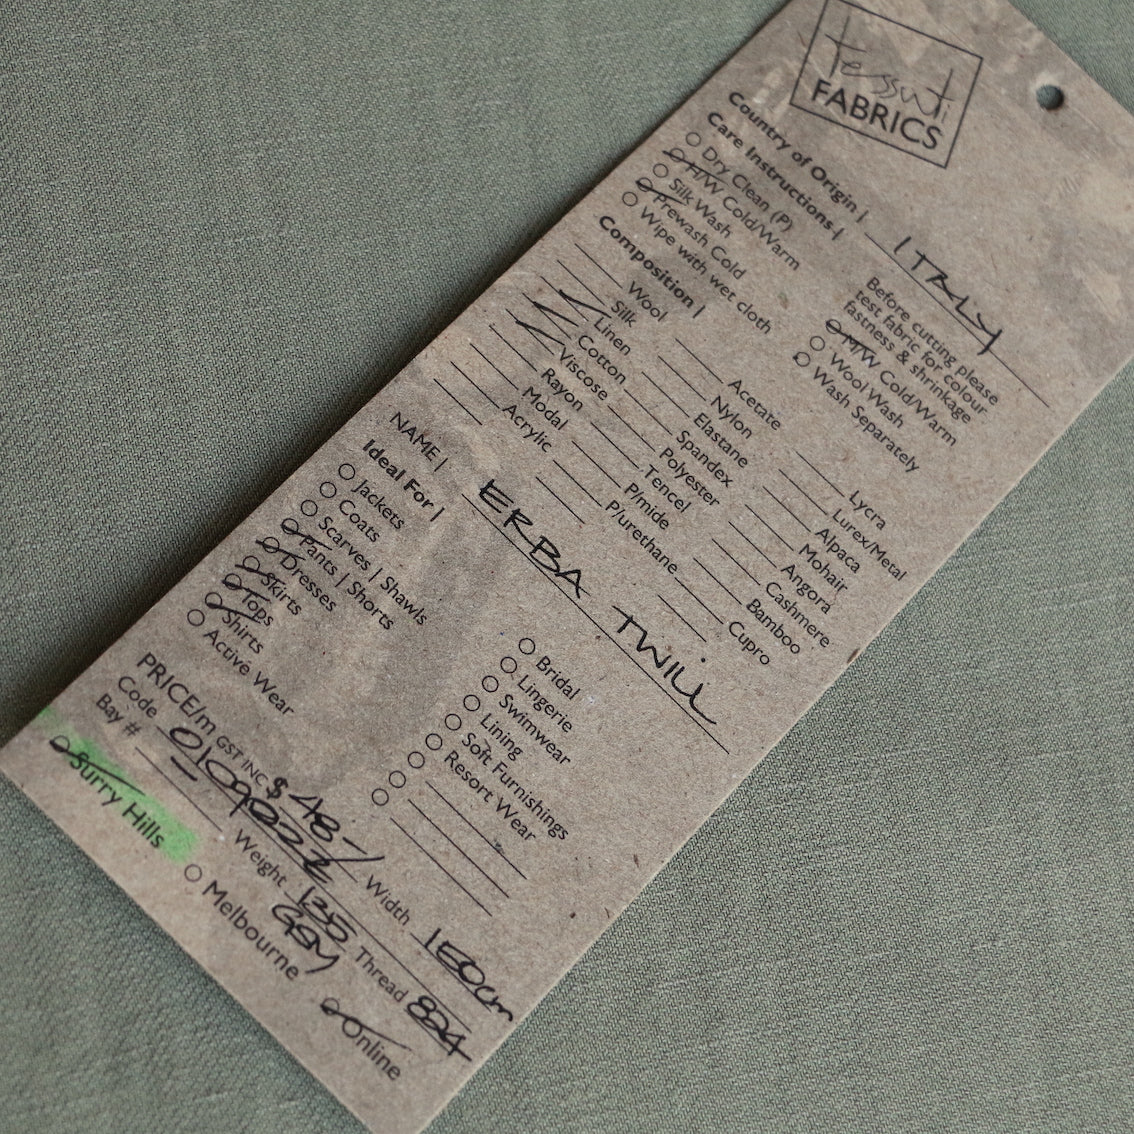 tessuti
FABRICS
Country of Origin | ITALY
Care Instructions |
Dry Clean (P)
H/W Cold/Warm
Silk Wash
Prewash Cold
Wipe with wet cloth
Before cutting please
test fabric for colour
fastness & shrinkage
M/W Cold/Warm
Wool Wash
Wash Separately
Composition |
Wool
Silk
Linen
Cotton
Viscose
Rayon
Modal
Acrylic
Acetate
Nylon
Elastane
Spandex
Polyester
Tencel
P/mide
P/urethane
Lycra
Lurex/Metal
Alpaca
Mohair
Angora
Cashmere
Bamboo
Cupro
NAME | ERBA TWILL
Ideal For |
Jackets
Coats
Scarves | Shawls
Pants | Shorts
Dresses
Skirts
Tops
Shirts
Active Wear
Bridal
Lingerie
Swimwear
Lining
Soft Furnishings
Resort Wear
PRICE/m GST INC $ 48-/ Width 150cm
Code
Bay #
Weight 135 GSM Thread 824
Surry Hills
Melbourne
Online